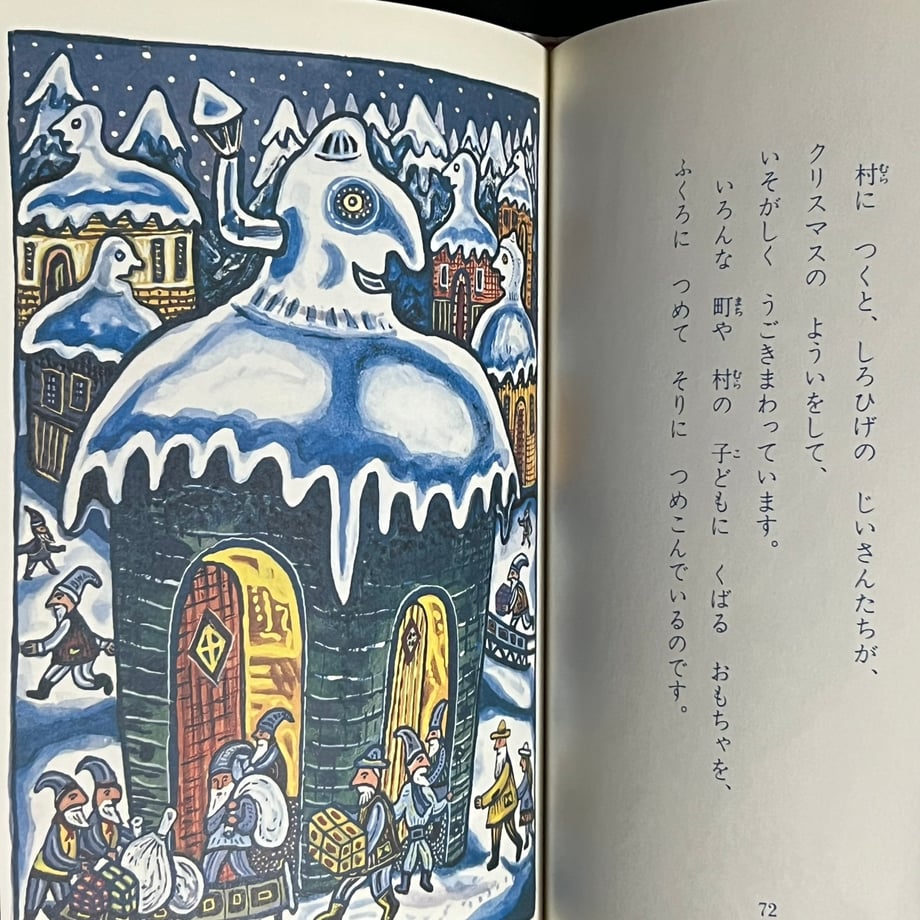 村に　つくと、しろひげの　じいさんたちが、
クリスマスの　よういをして、
いそがしく　うごきまわっています。
いろんな　町や　村の　子どもに　くばる　おもちゃを、
ふくろに　つめて　そりに　つめこんでいるのです。
72